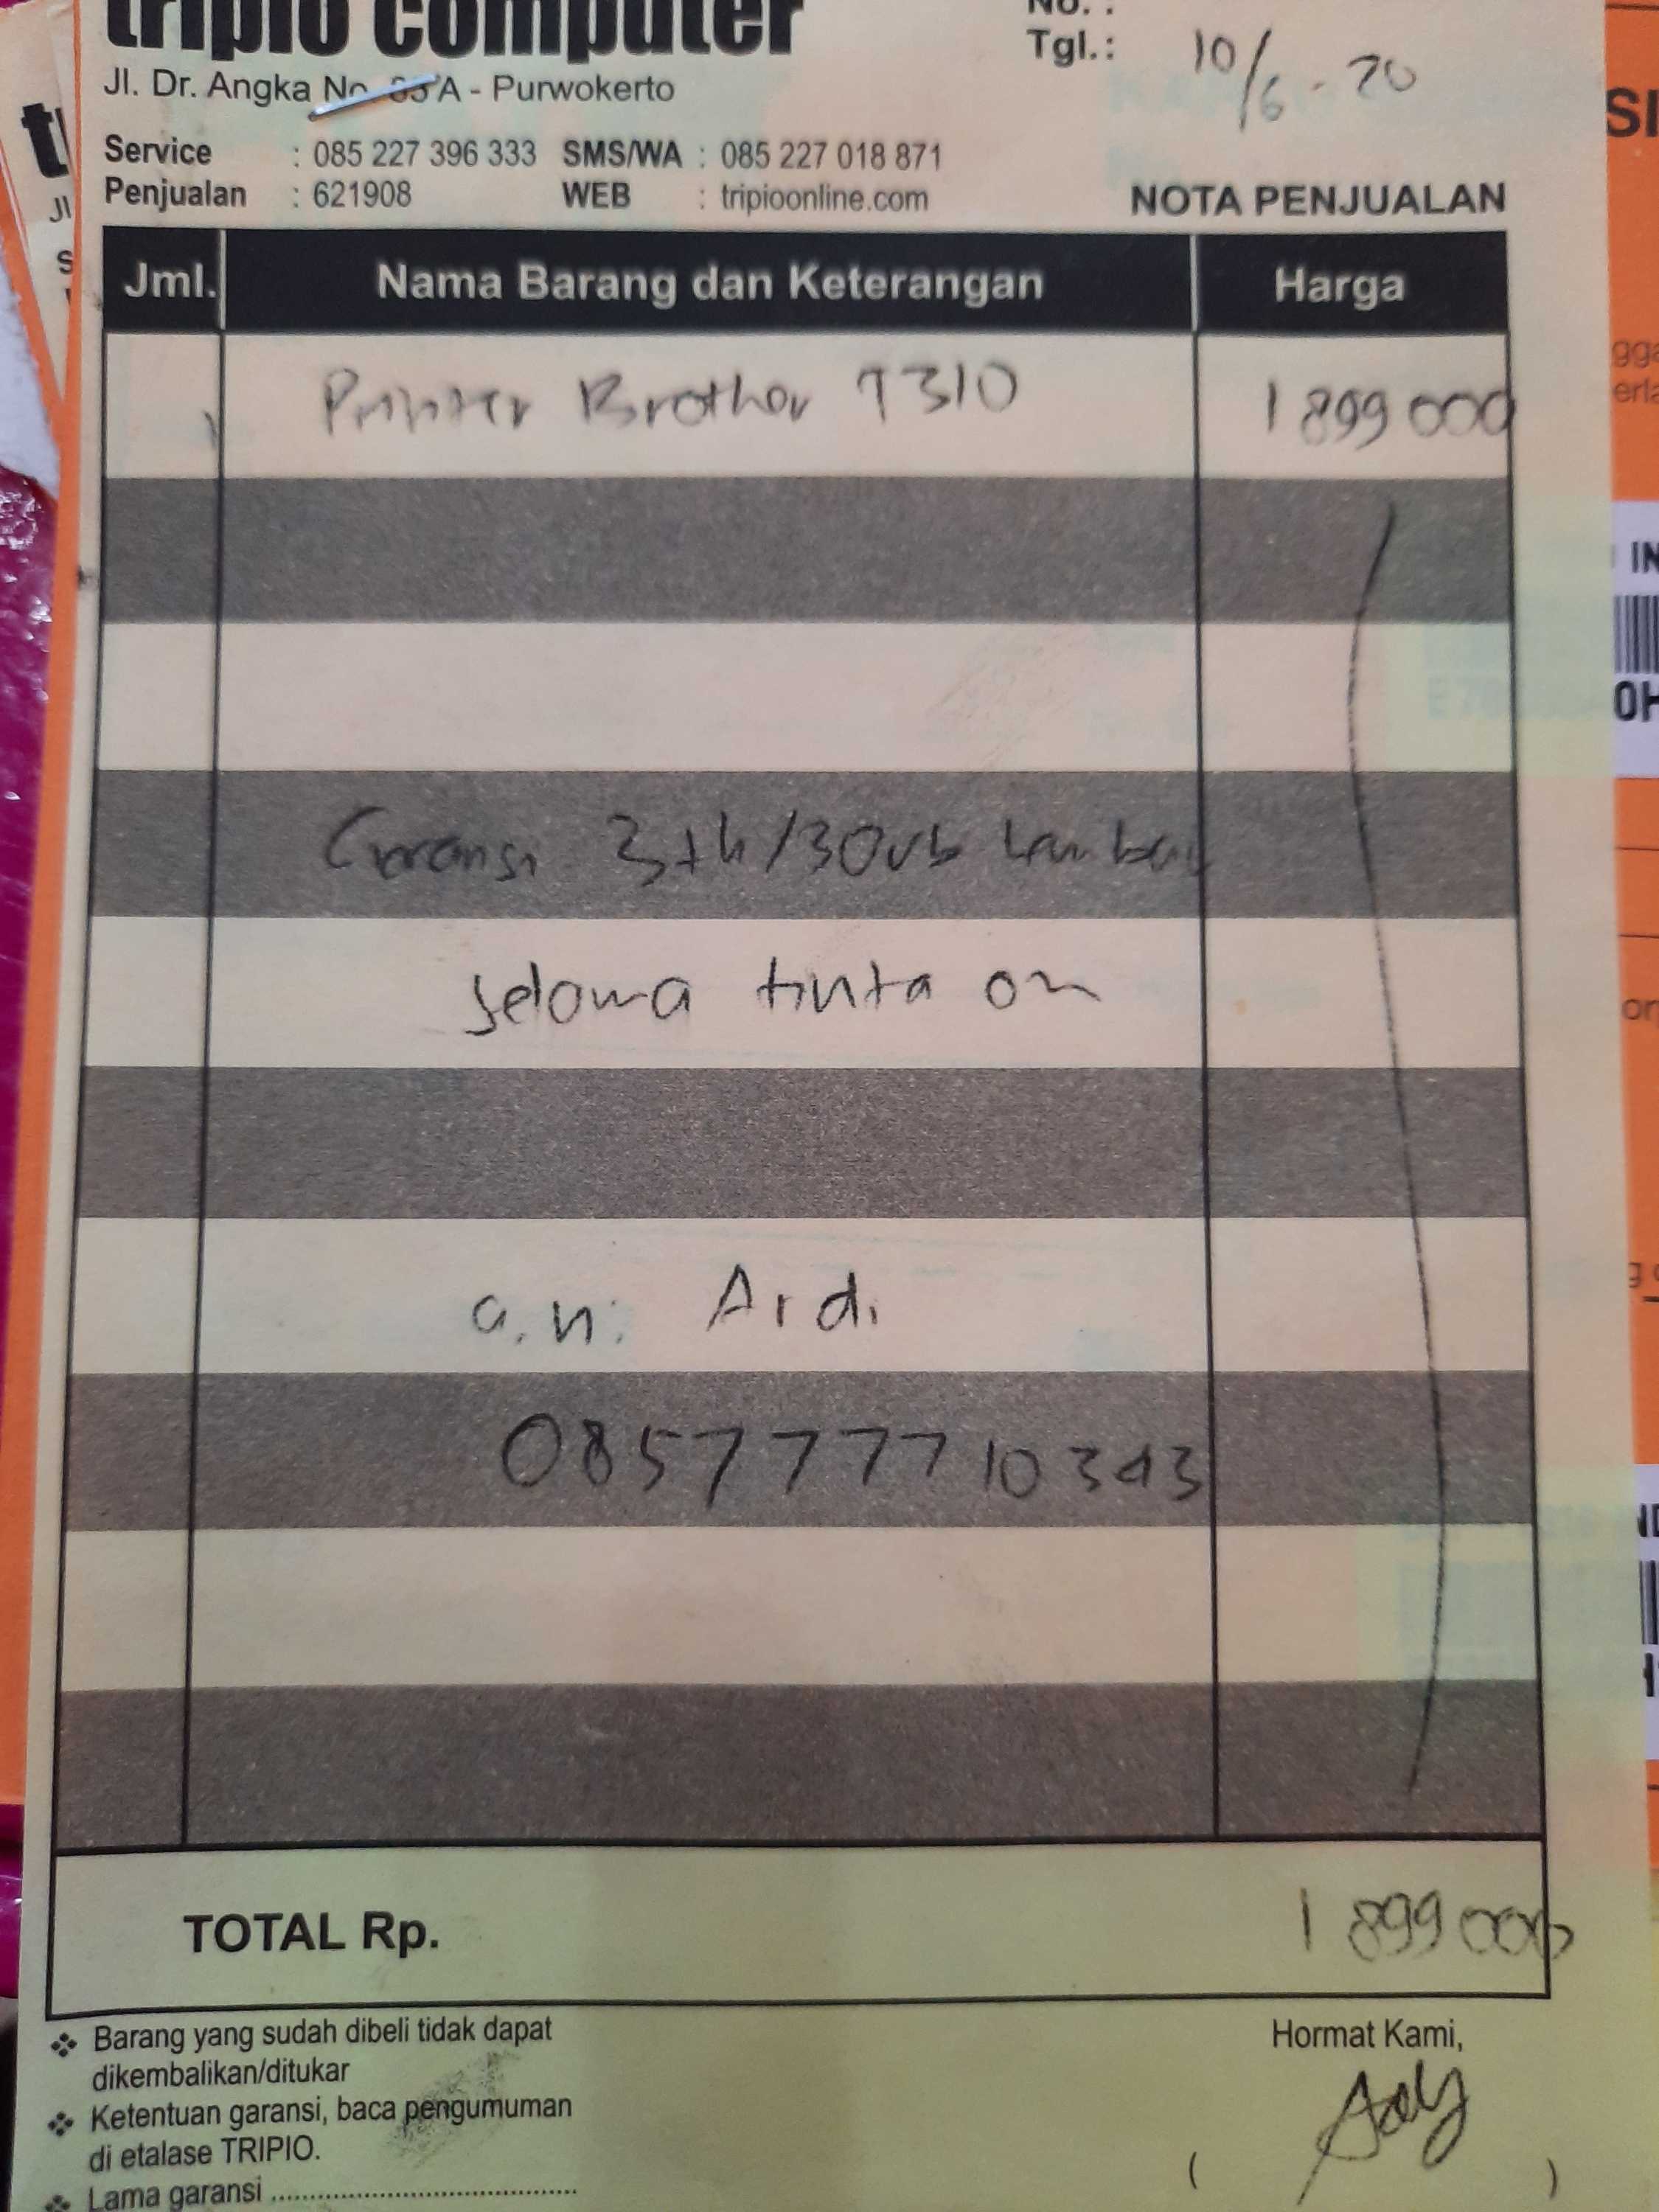 tripio computer
No. :
Jl. Dr. Angka No. 85 A - Purwokerto
Tgl.: 10/6 - 20
Service : 085 227 396 333 SMS/WA : 085 227 018 871
Penjualan : 621908 WEB : tripioonline.com
NOTA PENJUALAN
Jml. Nama Barang dan Keterangan Harga
1 Printer Brother T310 1 899 000
Garansi 3th/30rb lembar
selama tinta ori
a.n: Ardi
085777710343
TOTAL Rp. 1 899 000
Barang yang sudah dibeli tidak dapat
dikembalikan/ditukar
Ketentuan garansi, baca pengumuman
di etalase TRIPIO.
Lama garansi ........................................
Hormat Kami,
( )